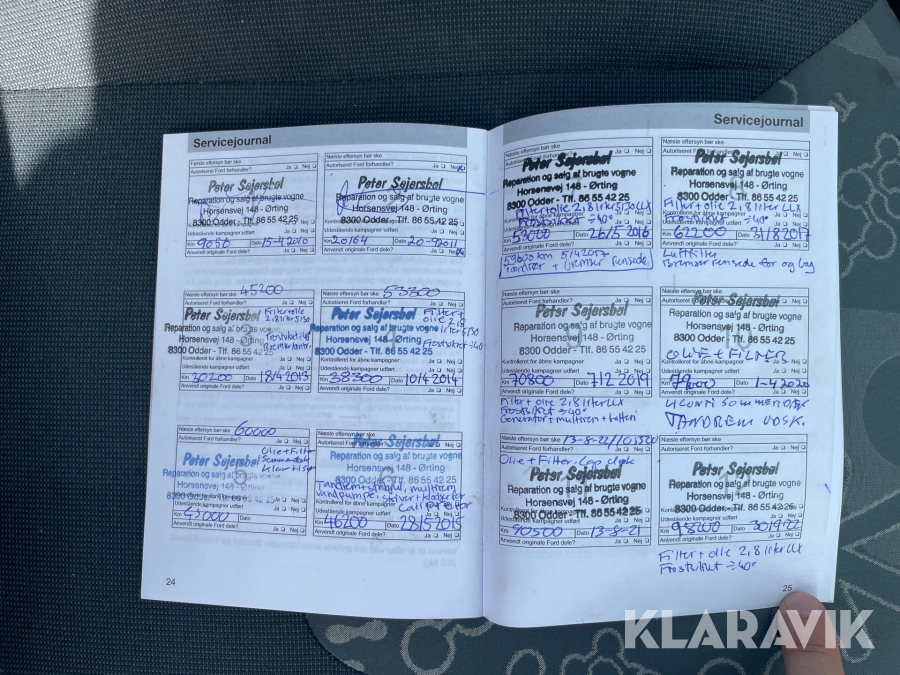 Servicejournal
Første eftersyn bør ske
Autoriseret Ford forhandler? Ja Nej
Peter Sejersbøl
Reparation og salg af brugte vogne
Horsensvej 148 - Ørting
8300 Odder - Tlf. 86 55 42 25
Udestående kampagner udført Ja Nej
Km 9056 Dato 15-4 2010
Anvendt originale Ford dele? Ja Nej
Næste eftersyn bør ske
Autoriseret Ford forhandler? Ja Nej
Peter Sejersbøl
Reparation og salg af brugte vogne
Horsensvej 148 - Ørting
8300 Odder - Tlf. 86 55 42 25
Udestående kampagner udført Ja Nej
Km 20164 Dato
Anvendt originale Ford dele? Ja Nej
Næste eftersyn bør ske 45200
Autoriseret Ford forhandler? Ja Nej
Peter Sejersbøl
Filter+olie
2,8 liter 5/30
Reparation og salg af brugte vogne
Horsensvej 148 - Ørting
8300 Odder - Tlf. 86 55 42 25
Udestående kampagner udført Ja Nej
Km 30200 Dato 18/4 2013
Anvendt originale Ford dele? Ja Nej
Næste eftersyn bør ske 53300
Autoriseret Ford forhandler? Ja Nej
Filter+
olie 2,8
liter 5/30
Peter Sejersbøl
Reparation og salg af brugte vogne
Horsensvej 148 - Ørting
Frostsikret ÷40°
8300 Odder - Tlf. 86 55 42 25
Udestående kampagner udført Ja Nej
Km 38300 Dato 10/4 2014
Anvendt originale Ford dele? Ja Nej
Næste eftersyn bør ske 60000
Autoriseret Ford forhandler? Ja Nej
Olie+Filter
Peter Sejersbøl
Reparation og salg af brugte vogne
Horsensvej 148 - Ørting
8300 Odder - Tlf. 86 55 42 25
Udestående kampagner udført Ja Nej
Km 45000 Dato
Anvendt originale Ford dele? Ja Nej
Næste eftersyn bør ske
Autoriseret Ford forhandler? Ja Nej
Peter Sejersbøl
Reparation og salg af brugte vogne
Horsensvej 148 - Ørting
Tandrem+strammehjul, multirem
8300 Odder - Tlf. 86 55 42 25
Udestående kampagner udført Ja Nej
Km 46200 Dato 28/5 2015
Anvendt originale Ford dele? Ja Nej
24
Servicejournal
Næste eftersyn bør ske
Autoriseret Ford forhandler? Ja Nej
Peter Sejersbøl
Reparation og salg af brugte vogne
Horsensvej 148 - Ørting
Filter+olie 2,8 liter 5/30 LX
8300 Odder - Tlf. 86 55 42 25
Frostsikret ÷40°
Kontrolleret for åbne kampagner Ja Nej
Udestående kampagner udført Ja Nej
Km 53000 Dato 26/5 2016
Anvendt originale Ford dele? Ja Nej
59600 km 5/4 2017
+ bremser rensede
Næste eftersyn bør ske
Autoriseret Ford forhandler? Ja Nej
Peter Sejersbøl
Reparation og salg af brugte vogne
Horsensvej 148 - Ørting
Filter+olie 2,8 liter LX
8300 Odder - Tlf. 86 55 42 25
Frostsikret ÷40°
Kontrolleret for åbne kampagner Ja Nej
Udestående kampagner udført Ja Nej
Km 62200 Dato 31/8 2017
Anvendt originale Ford dele? Ja Nej
Luftfilter
Bremser rensede for og bag
Næste eftersyn bør ske
Autoriseret Ford forhandler? Ja Nej
Peter Sejersbøl
Reparation og salg af brugte vogne
Horsensvej 148 - Ørting
8300 Odder - Tlf. 86 55 42 25
Kontrolleret for åbne kampagner Ja Nej
Udestående kampagner udført Ja Nej
Km 70800 Dato 7/12 2019
Anvendt originale Ford dele? Ja Nej
Filter+olie 2,8 liter LX
Frostsikret ÷40°
Generator+multirem+batteri
Næste eftersyn bør ske
Autoriseret Ford forhandler? Ja Nej
Peter Sejersbøl
Reparation og salg af brugte vogne
Horsensvej 148 - Ørting
OLIE+FILTER
8300 Odder - Tlf. 86 55 42 25
Kontrolleret for åbne kampagner Ja Nej
Udestående kampagner udført Ja Nej
Km Dato 1-4 2020
Anvendt originale Ford dele? Ja Nej
TANDREM UDSK.
Næste eftersyn bør ske 13-8-22/105500
Autoriseret Ford forhandler? Ja Nej
Olie+Filter
Peter Sejersbøl
Reparation og salg af brugte vogne
Horsensvej 148 - Ørting
8300 Odder - Tlf. 86 55 42 25
Udestående kampagner udført Ja Nej
Km 90500 Dato 13-8-21
Anvendt originale Ford dele? Ja Nej
Næste eftersyn bør ske
Autoriseret Ford forhandler? Ja Nej
Peter Sejersbøl
Reparation og salg af brugte vogne
Horsensvej 148 - Ørting
8300 Odder - Tlf. 86 55 42 25
Udestående kampagner udført Ja Nej
Km 98200 Dato 30/9 22
Anvendt originale Ford dele? Ja Nej
Filter+olie 2,8 liter LX
Frostsikret ÷40°
25
KLARAVIK